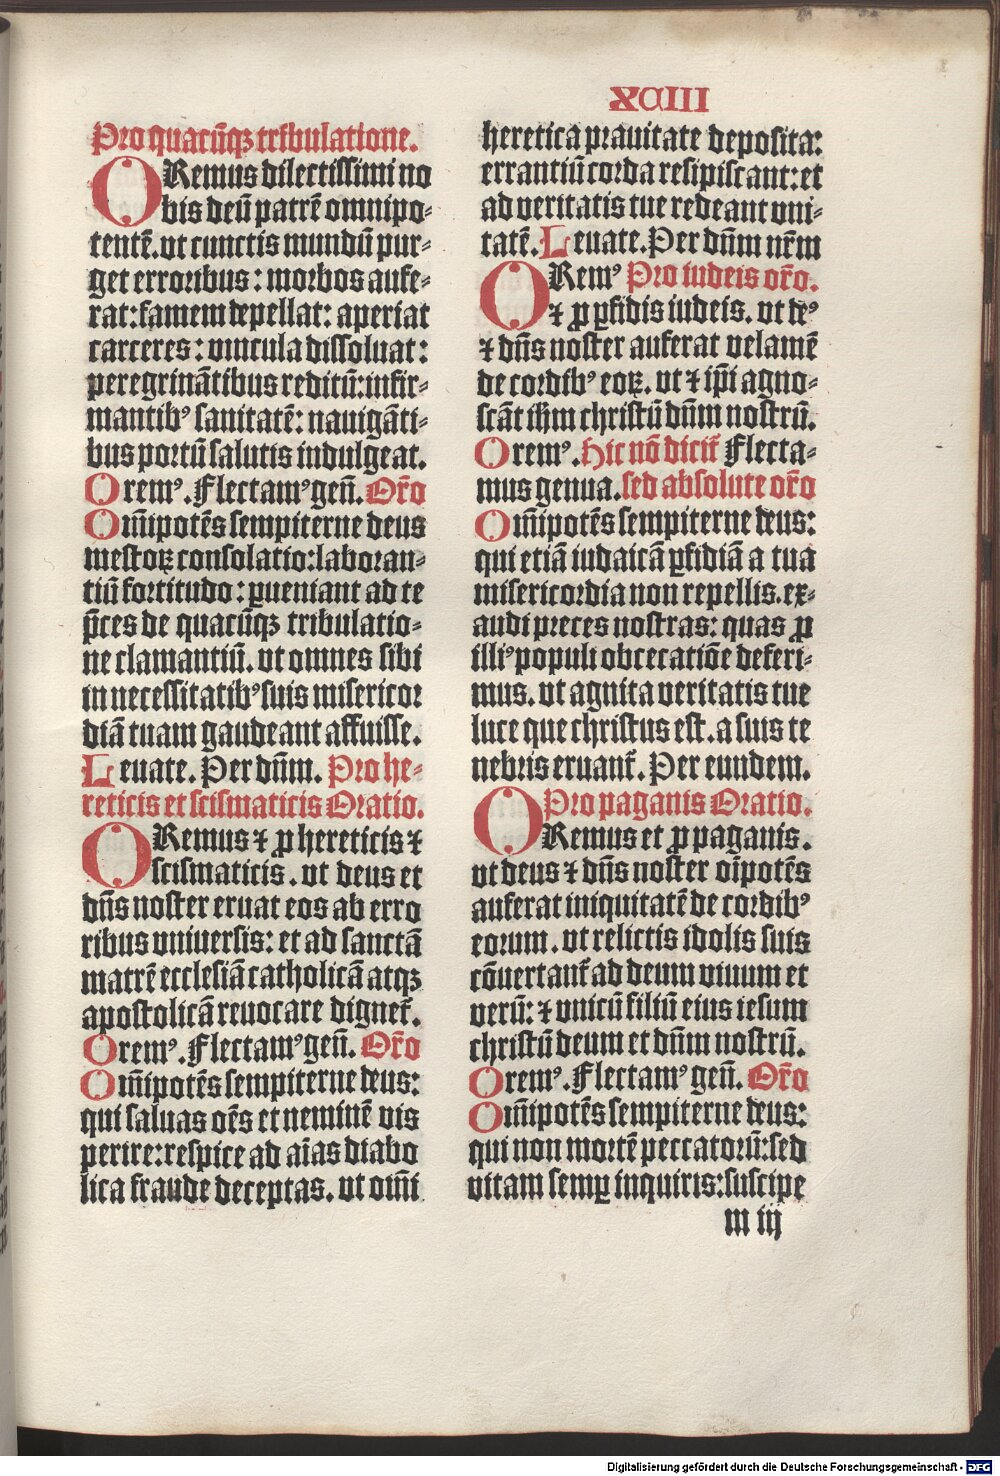 XCIII
Pro quacūqꝫ tribulatione.
ORemus dilectissimi no
bis deū patrē omnipo⸗
tentē. vt cunctis mundū pur⸗
get erroribus: morbos aufe⸗
rat: famem depellat: aperiat
carceres: vincula dissoluat:
peregrinātibus reditū: infir⸗
mantibꝰ sanitatē: nauigāti⸗
bus portū salutis indulgeat.
Oremꝰ. Flectamꝰ geñ. Or̄o
Om̄ipotēs sempiterne deus
mestoꝝ consolatio: laboran⸗
tiū fortitudo: ꝑueniant ad te
p̄ces de quacūqꝫ tribulatio⸗
ne clamantiū. vt omnes sibi
in necessitatibꝰ suis misericor
diā tuam gaudeant affuisse.
Leuate. Per dn̄m. Pro he⸗
reticis et scismaticis Oratio.
ORemus ⁊ ꝓ hereticis ⁊
scismaticis. vt deus et
dn̄s noster eruat eos ab erro
ribus vniuersis: et ad sanctā
matrē ecclesiā catholicā atqꝫ
apostolicā reuocare dignet᷑.
Oremꝰ. Flectamꝰ geñ. Or̄o
Om̄ipotēs sempiterne deus:
qui saluas oēs et neminē vis
perire: respice ad aīas diabo
lica fraude deceptas. vt om̄i
heretica prauitate deposita:
errantiū corda resipiscant: et
ad veritatis tue redeant vni⸗
tatē. Leuate. Per dn̄m nr̄m
ORemꝰ Pro iudeis or̄o.
⁊ ꝓ ꝑfidis iudeis. vt deꝰ
⁊ dn̄s noster auferat velamē
de cordibꝰ eoꝝ. vt ⁊ ip̄i agno⸗
scāt ih̄m christū dn̄m nostrū.
Oremꝰ. Hic nō dicit᷑ Flecta⸗
mus genua. sed absolute or̄o
Om̄ipotēs sempiterne deus:
qui etiā iudaicā ꝑfidiā a tua
misericordia non repellis. ex⸗
audi preces nostras: quas ꝓ
illiꝰ populi obcecatiōe deferi⸗
mus. vt agnita veritatis tue
luce que christus est. a suis te
nebris eruant᷑. Per eundem.
Pro paganis Oratio.
ORemus et ꝓ paganis.
vt deus ⁊ dn̄s noster oīpotēs
auferat iniquitatē de cordibꝰ
eorum. vt relictis idolis suis
cōuertant᷑ ad deum viuum et
verū: ⁊ vnicū filiū eius iesum
christū deum et dn̄m nostrū.
Oremꝰ. Flectamꝰ geñ. Or̄o
Om̄ipotēs sempiterne deus:
qui non mortē peccatorū: sed
vitam semꝑ inquiris: suscipe
m iij
Digitalisierung gefördert durch die Deutsche Forschungsgemeinschaft - DFG